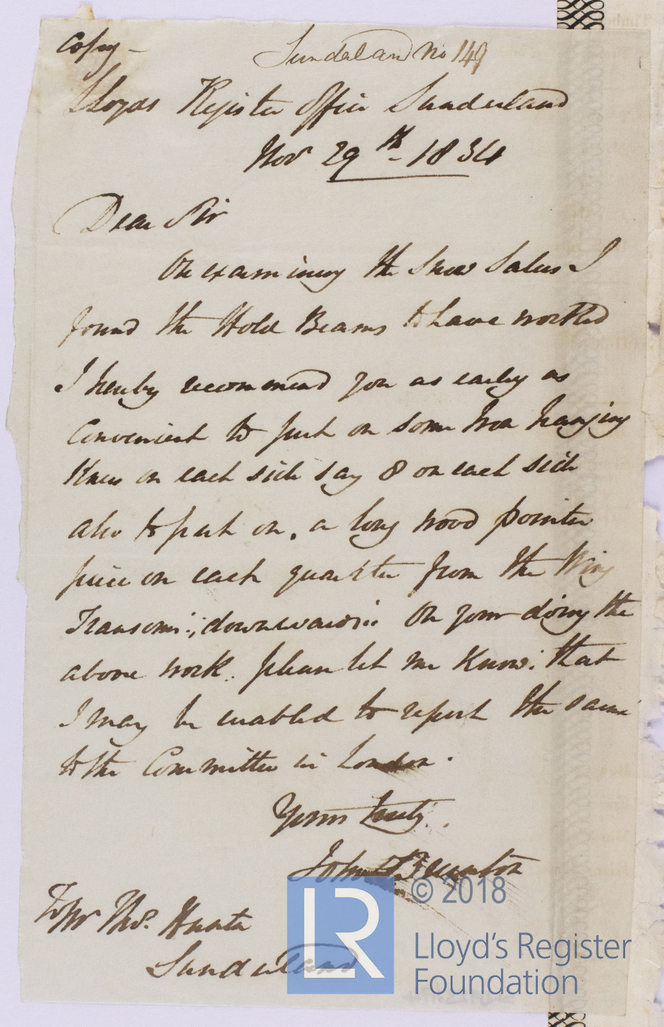 Copy -
Sunderland No 149
Lloyds Register Office Sunderland
Novr 29th - 1834
Dear Sir
On examining the Snow I
found the Hold Beams to have worked
I hereby recommend you as early as
Convenient to put on some Iron hanging
Knees on each side say 8 on each side
also to put on. a long wood pointer
piece on each quarter from the Wing
Transom:, downwards:. On your doing the
above work. please let me know: that
I may be enabled to report the same
to the Committee in London.
Yours truly.
John Brunton
To Mr Thos. Hunter
Sunderland
LR
© 2018
Lloyd's Register
Foundation